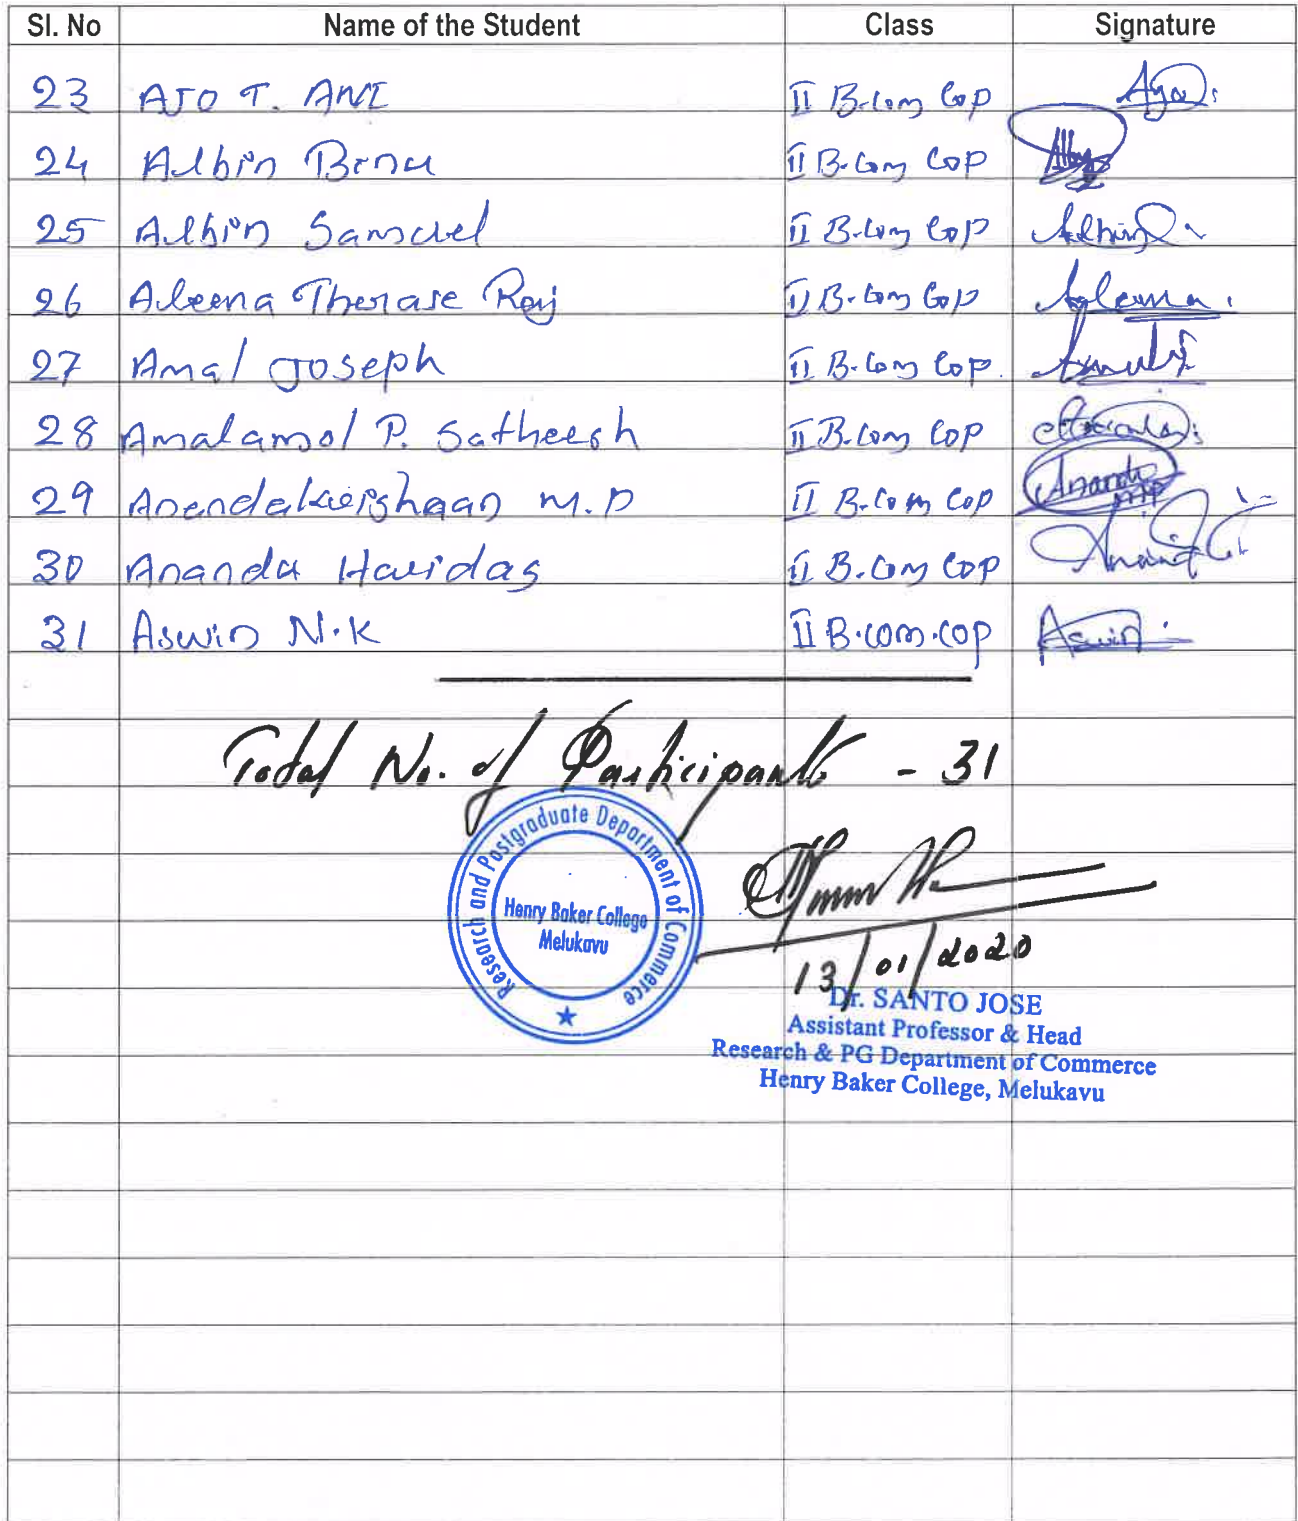 Sl. No Name of the Student Class Signature
23 AJO T. ANI II B.Com Cop Ajo
24 Albin Binu II B.Com Cop
25 Albin Samuel II B.Com Cop Albin
26 Aleena Therase Roy II B.Com Cop Aleena.
27 Amal Joseph II B.Com Cop. Amal
28 Amalamol P. Satheesh II B.Com Cop
29 Anandakrishnan M.P II B.Com Cop Anandu MP
30 Ananda Haridas II B.Com Cop
31 Aswin N.K II B.com.cop Aswin
Total No. of Participants - 31
Research and Postgraduate Department of Commerce
Henry Baker College
Melukavu
13/01/2020
Dr. SANTO JOSE
Assistant Professor & Head
Research & PG Department of Commerce
Henry Baker College, Melukavu